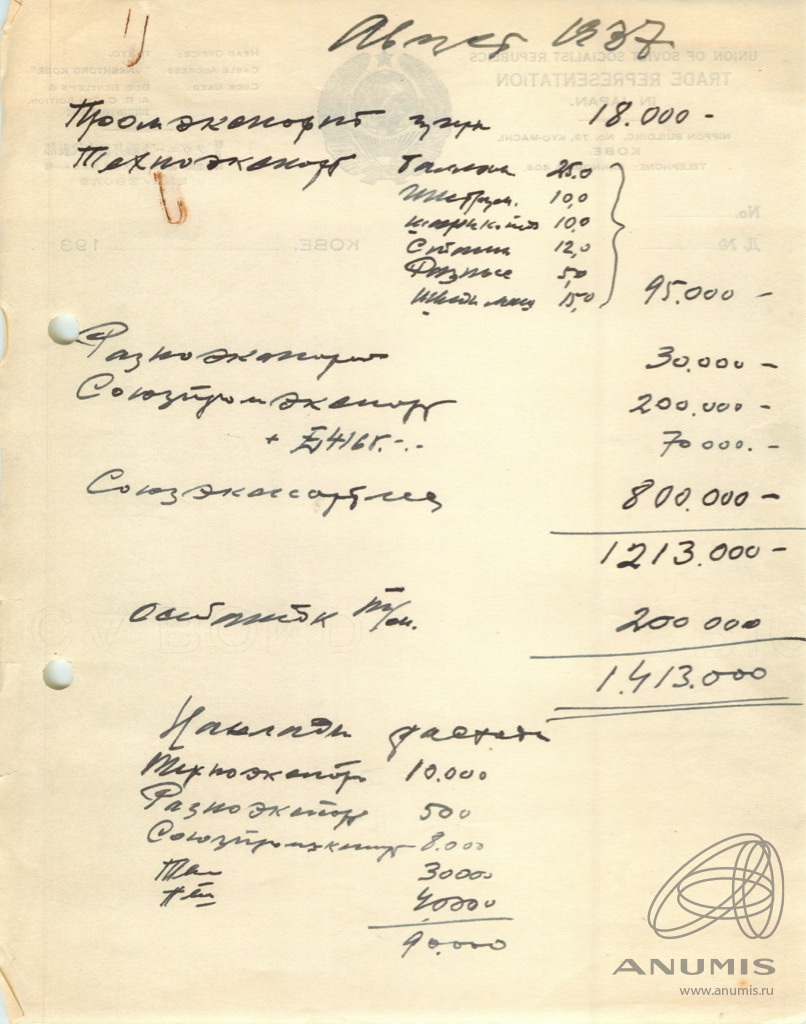 Август 1937
Промэкспорт 18.000 -
Техноэкспорт 25.0
10,0
10,0
Станки 12,0
Разные 5,0
15,0 95.000 -
Разноэкспорт 30.000 -
Союзпромэкспорт 200.000 -
+ 70000. -
800.000 -
1213.000 -
Остаток 200 000
1.413.000
Накладн расходы
Техноэкспорт 10.000
Разноэкспорт 500
Союзпромэкспорт 8.000
30000
40000
90.000
UNION OF SOVIET SOCIALIST REPUBLICS
TRADE REPRESENTATION
IN JAPAN.
NIPPON BUILDING, No. 79, KYO-MACHI,
KOBE
HEAD OFFICE: TOKYO.
CABLE ADDRESS: "VNESHTORG KOBE"
No.
KOBE, 193
ANUMIS
www.anumis.ru